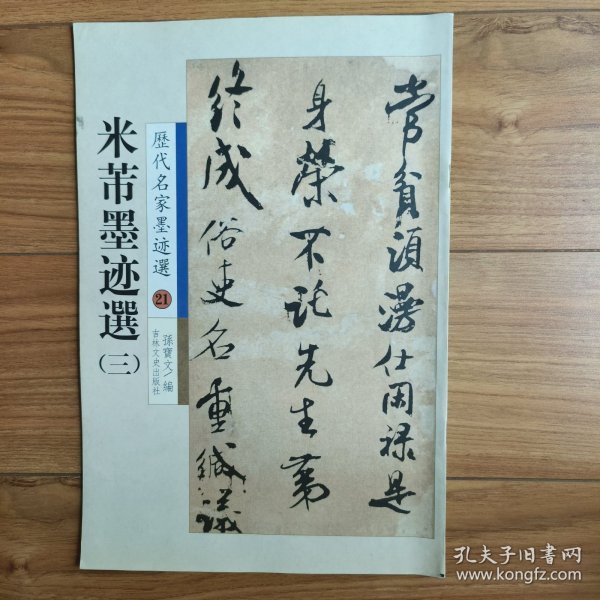 米芾墨迹選(三)
歷代名家墨迹選
21
孫寶文/編
吉林文史出版社
常貧須漫仕閑禄是
身榮不託先生第
終成俗吏名重緘議
孔夫子旧书网
www.kongfz.com